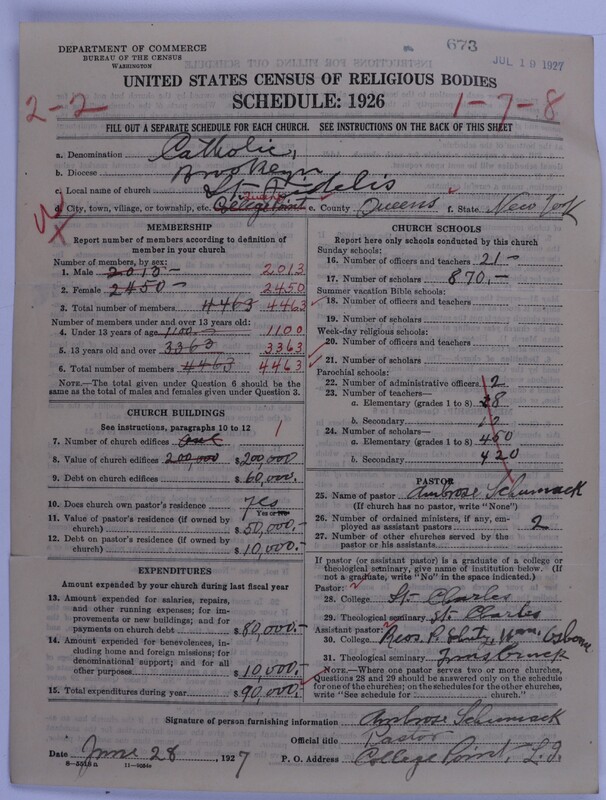 673
JUL 19 1927
DEPARTMENT OF COMMERCE
BUREAU OF THE CENSUS
WASHINGTON
UNITED STATES CENSUS OF RELIGIOUS BODIES
2-2
SCHEDULE: 1926
1-7-8
FILL OUT A SEPARATE SCHEDULE FOR EACH CHURCH. SEE INSTRUCTIONS ON THE BACK OF THIS SHEET
a. Denomination Catholic
b. Diocese Brooklyn
c. Local name of church St. Fidelis
d. City, town, village, or township, etc. College Point e. County Queens f. State New York
MEMBERSHIP
Report number of members according to definition of member in your church
Number of members, by sex:
1. Male 2013 2013
2. Female 2450 2450
3. Total number of members 4463 4463
Number of members under and over 13 years old:
4. Under 13 years of age 1100 1100
5. 13 years old and over 3363 3363
6. Total number of members 4463 4463
NOTE.—The total given under Question 6 should be the same as total of males and females given under Question 3.
CHURCH BUILDINGS
See instructions, paragraphs 10 to 12
7. Number of church edifices One 1
8. Value of church edifices 200,000 $200,000
9. Debt on church edifices $60,000.-
10. Does church own pastor's residence yes
Yes or No
11. Value of pastor's residence (if owned by church) $50,000,-
12. Debt on pastor's residence (if owned by church) $10,000.-
EXPENDITURES
Amount expended by your church during last fiscal year
13. Amount expended for salaries, repairs, and other running expenses; for improvements or new buildings; and for payments on church debt $80,000.-
14. Amount expended for benevolences, including home and foreign missions; for denominational support; and for all other purposes $10,000.-
15. Total expenditures during year $90,000.-
CHURCH SCHOOLS
Report here only schools conducted by this church
Sunday schools:
16. Number of officers and teachers 21-
17. Number of scholars 870.-
Summer vacation Bible schools:
18. Number of officers and teachers
19. Number of scholars
Week-day religious schools:
20. Number of officers and teachers
21. Number of scholars
Parochial schools:
22. Number of administrative officers 2
23. Number of teachers—
a. Elementary (grades 1 to 8)
b. Secondary
24. Number of scholars—
a. Elementary (grades 1 to 8) 450
b. Secondary 420
PASTOR
25. Name of pastor Ambrose Schumack
(If church has no pastor, write "None")
26. Number of ordained ministers, if any, employed as assistant pastors 2
27. Number of other churches served by the pastor or his assistants
If pastor (or assistant pastor) is a graduate of a college or theological seminary, give name of institution below. (If not a graduate, write "No" in the space indicated.)
Pastor:
28. College St. Charles
29. Theological seminary St. Charles
Assistant pastor:
30. College
31. Theological seminary
NOTE.—Where one pastor serves two or more churches, Questions 28 and 29 should be answered only on the schedule for one of the churches; on the schedules for the other churches, write "See schedule for church."
Signature of person furnishing information Ambrose Schumack
Official title Pastor
Date June 28 1927 P. O. Address College Point, L. I.